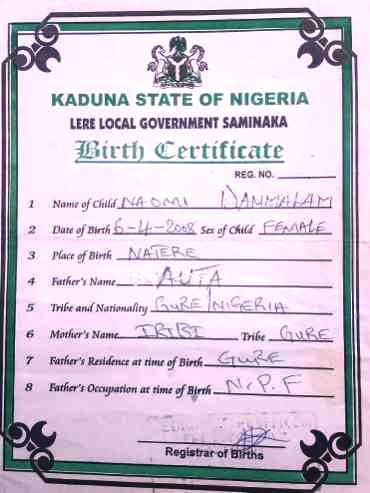 KADUNA STATE OF NIGERIA
LERE LOCAL GOVERNMENT SAMINAKA
Birth Certificate
REG. NO.
1 Name of Child NAOMI DANMALAM
2 Date of Birth 6-4-2008 Sex of Child FEMALE
3 Place of Birth NATERE
4 Father's Name AUTA
5 Tribe and Nationality GURE/NIGERIA
6 Mother's Name IRIBI Tribe GURE
7 Father's Residence at time of Birth GURE
8 Father's Occupation at time of Birth N.P.F
Registrar of Births